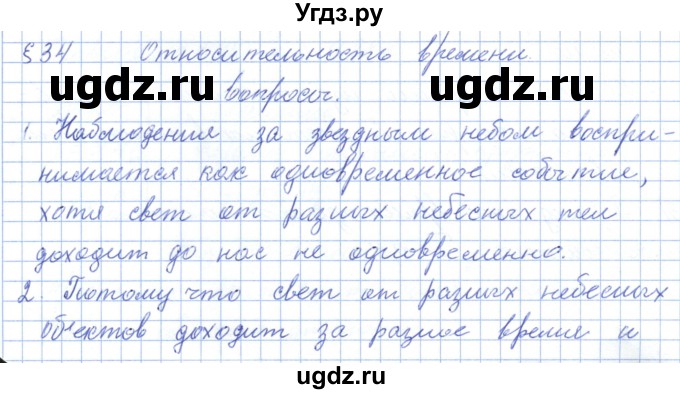 Угдз.ру
§ 34 Относительность времени.
ugdz.ru ugdz.ru
Вопросы.
1. Наблюдения за звездным небом воспри-
нимается как одновременное событие,
хотя свет от разных небесных тел
доходит до нас не одновременно.
2. Потому что свет от разных небесных
объектов доходит за разное время и
ugdz.ru